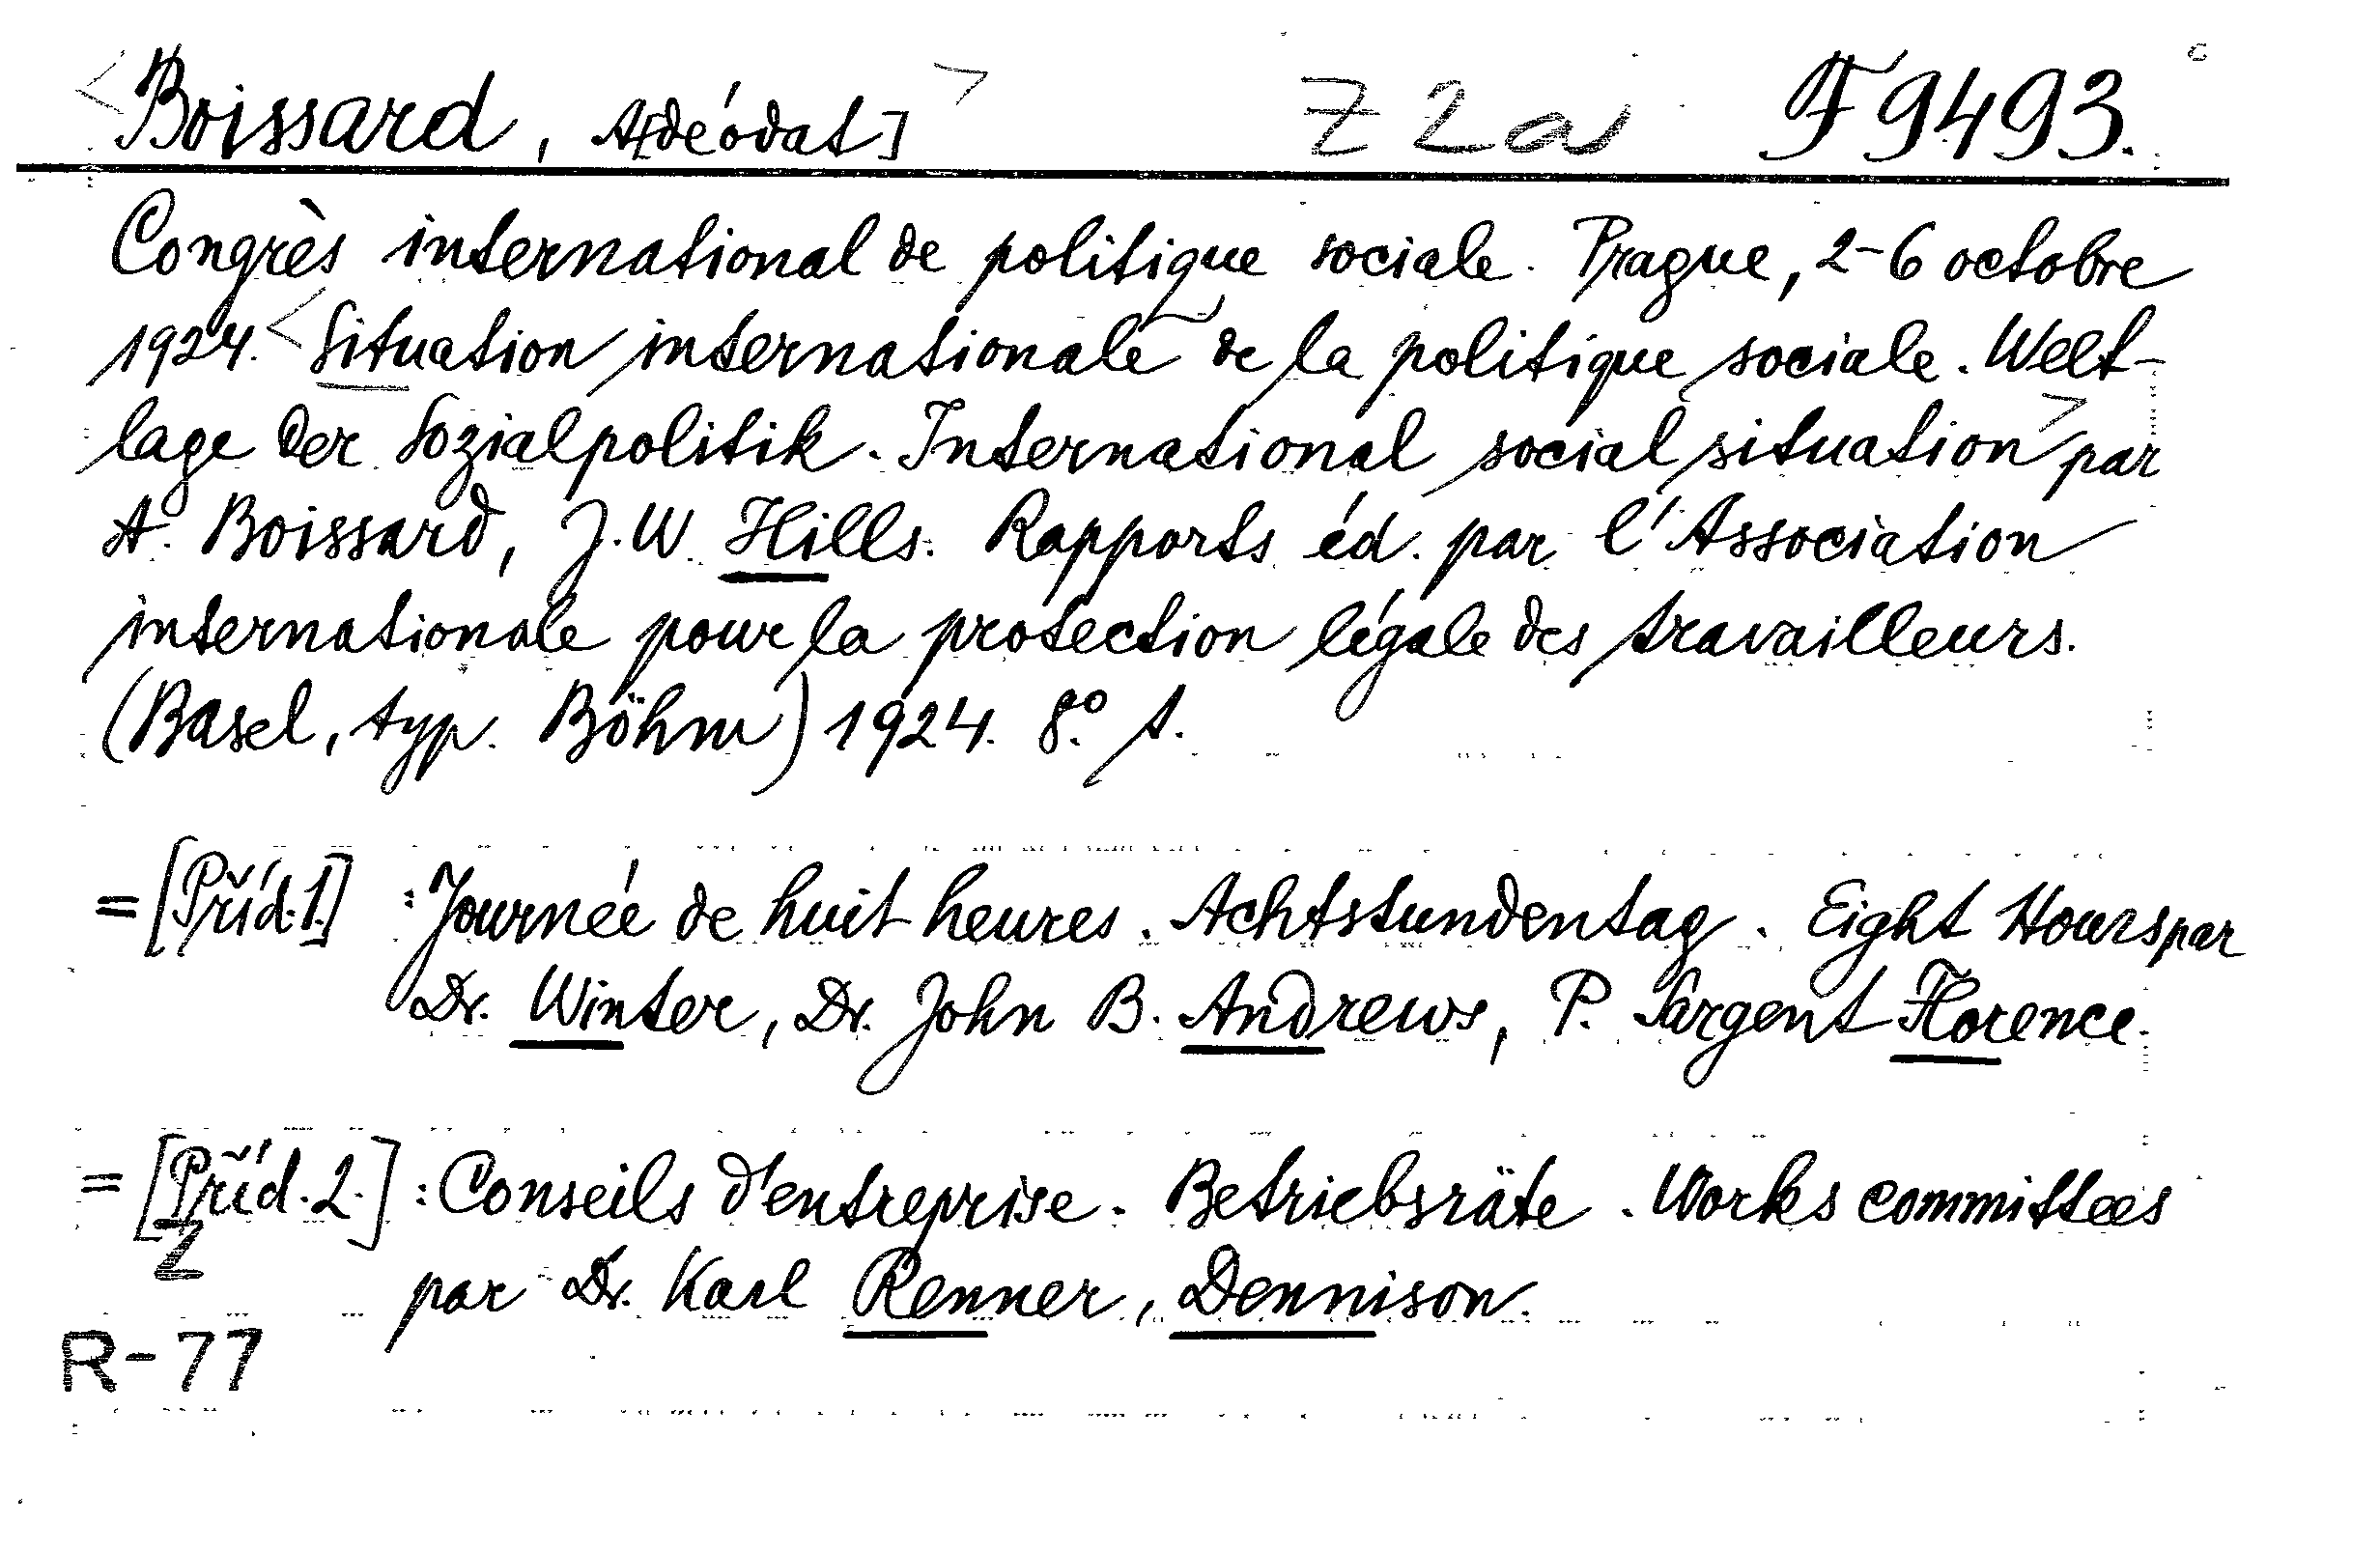 <Boissard, A[déodat]> Z 2a F 9493.
Congrès international de politique sociale. Prague, 2-6 octobre
1924. <Situation internationale de la politique sociale. Welt-
lage der Sozialpolitik. International social situation> par
A. Boissard, J. W. Hills. Rapports éd. par l'Association
internationale pour la protection légale des travailleurs.
(Basel, typ. Böhm) 1924. 8.° s.
=[Příd. 1.] : Journée de huit heures. Achtstundentag. Eight Hours par
Dr. Winter, Dr. John B. Andrews, P. Sargent Florence.
=[Příd. 2.] : Conseils d'entreprise. Betriebsräte. Works committees
par Dr. Karl Renner, Dennison.
Z
R-77